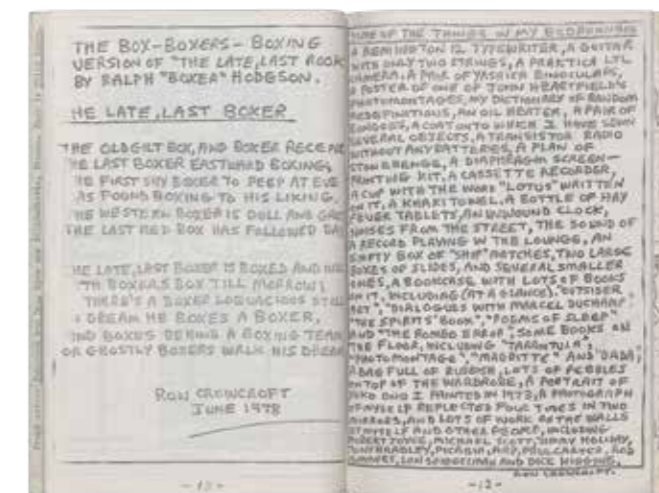 THE BOX-BOXERS - BOXING
VERSION OF "THE LATE, LAST ROOK"
BY RALPH "BOXER" HODGSON.
HE LATE, LAST BOXER
THE OLD GILT BOX, AND BOXER
HE LAST BOXER EASTWARD BOXING;
HE FIRST SHY BOXER TO PEEP AT EVE
AS FOUND BOXING TO HIS LIKING.
HE WESTERN BOXER IS DULL AND
THE LAST RED BOX HAS FOLLOWED
HE LATE, LAST BOXER IS BOXED AND
TH BOXERS BOX TILL MORROW;
THERE'S A BOXER LOQUACIOUS STILL
I DREAM HE BOXES A BOXER.
AND BOXES BEHIND A BOXING TEAM
OR GHOSTLY BOXERS WALK HIS DREAM
RON CROWCROFT
JUNE 1978
- 13 -
OF THE THINGS IN MY
A REMINGTON 12 TYPEWRITER, A GUITAR
WITH ONLY TWO STRINGS, A PRAKTICA LTL
CAMERA, A PAIR OF YASHICA BINOCULARS,
A POSTER OF ONE OF JOHN HEARTFIELD'S
PHOTOMONTAGES, MY DICTIONARY OF RANDOM
REDEFINITIONS, AN OIL HEATER, A PAIR OF
A COAT ONTO WHICH I HAVE SEWN
SEVERAL OBJECTS, A TRANSISTOR RADIO
WITHOUT ANY BATTERIES, A PLAN OF
STONEHENGE, A DIAPHRAGM SCREEN-
PRINTING KIT, A CASSETTE RECORDER,
A CUP WITH THE WORD "LOTUS" WRITTEN
ON IT, A KHAKI TOWEL, A BOTTLE OF HAY
FEVER TABLETS, AN UNWOUND CLOCK,
NOISES FROM THE STREET, THE SOUND OF
A RECORD PLAYING IN THE LOUNGE, AN
EMPTY BOX OF "SHIP" MATCHES, TWO LARGE
BOXES OF SLIDES, AND SEVERAL SMALLER
ONES, A BOOKCASE WITH LOTS OF BOOKS
ON IT, INCLUDING (AT A GLANCE), "OUTSIDER
ART", "DIALOGUES WITH MARCEL DUCHAMP",
"THE SPIRITS' BOOK", "POEMS OF SLEEP"
AND "THE ROMEO ERROR", SOME BOOKS ON
THE FLOOR, INCLUDING "TARANTULA",
"PHOTOMONTAGE", "MAGRITTE" AND "DADA",
A BAG FULL OF RUBBISH, LOTS OF PEBBLES
ON TOP OF THE WARDROBE, A PORTRAIT OF
YOKO ONO I PAINTED IN 1973, A PHOTOGRAPH
OF MYSELF REFLECTED FOUR TIMES IN TWO
MIRRORS, AND LOTS OF WORK ON THE WALLS
BY MYSELF AND OTHER PEOPLE, INCLUDING
ROBERT JOYCE, MICHAEL SCOTT, HOLIDAY,
TONY BRADLEY, PICABIA, ARP, PAUL CARTER, ROD
SUMMERS, LON SPIEGELMAN AND DICK HIGGINS.
RON CROWCROFT.
- 12 -